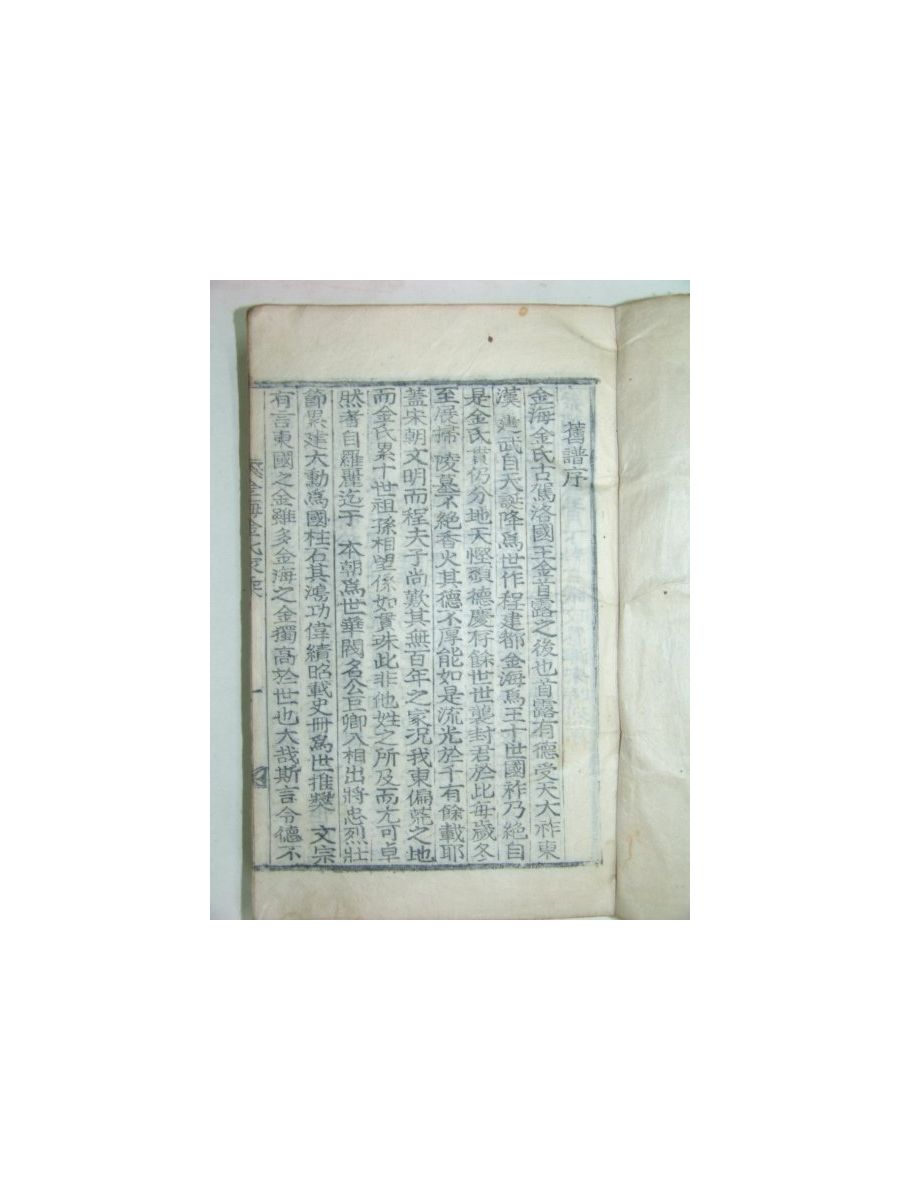 舊譜序
金海金氏古駕洛國王金首露之後也首露有德受天大祚東
漢建武自天誕降爲世作程建都金海爲王十世國祚乃絶自
是金氏貫仍分地天慳顡德慶存餘世世襲封君於此每歲冬
至展掃 陵墓不絶香火其德不厚能如是流光於千有餘載耶
蓋宋朝文明而程夫子尚歎其無百年之家况我東偏荒之地
而金氏累十世祖孫相望係如貫珠此非他姓之所及而尤可卓
然者自羅麗迄于 本朝爲世華閥名公巨卿入相出將忠烈壯
節累建大勳爲國柱石其鴻功偉績昭載史冊爲世推奬 文宗
有言東國之金雖多金海之金獨高於世也大哉斯言令德不
金海金氏家乘 一